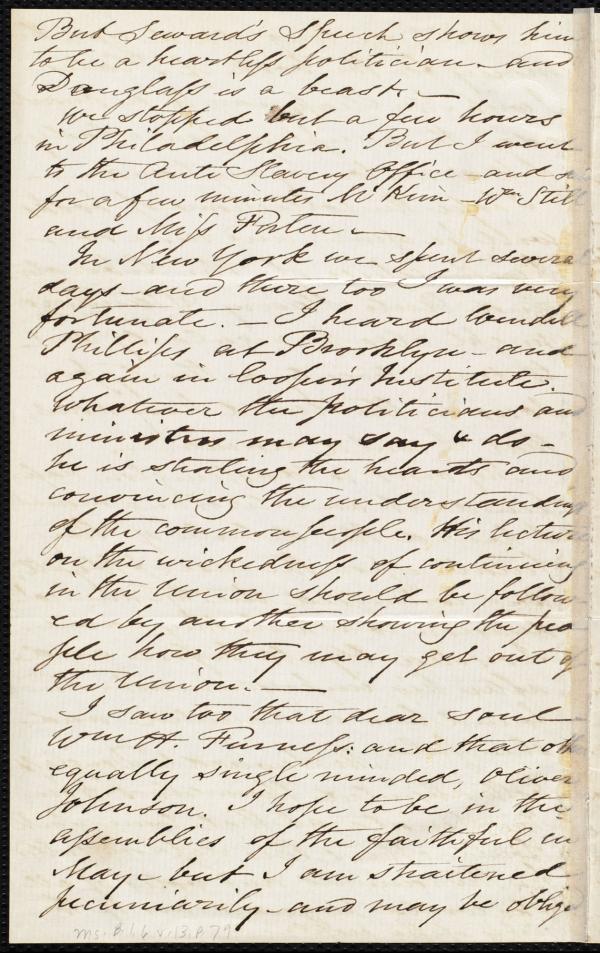 But Seward's Speech shows him
to be a heartless politician - and
Douglass is a beast. -
We stopped but a few hours
in Philadelphia. But I went
to the Anti Slavery Office - and
for a few minutes McKim - Wm Still
and Miss Forten -
In New York we spent several
days - and there too I was very
fortunate. - I heard Wendell
Phillips at Brooklyn - and
again in Cooper's Institute.
Whatever the politicians and
ministers may say & do -
he is stealing the hearts and
convincing the understanding
of the common people. His lecture
on the wickedness of continuing
in the Union should be follow-
ed by another showing the peo
ple how they may get out of
the Union. -
I saw too that dear soul
Wm H. Furness: and that oth
equally single minded, Oliver
Johnson. I hope to be in the
assemblies of the faithful in
May - but I am straitened
pecuniarily - and may be oblige
Ms. B. 1. 6 v. 13, p. 79